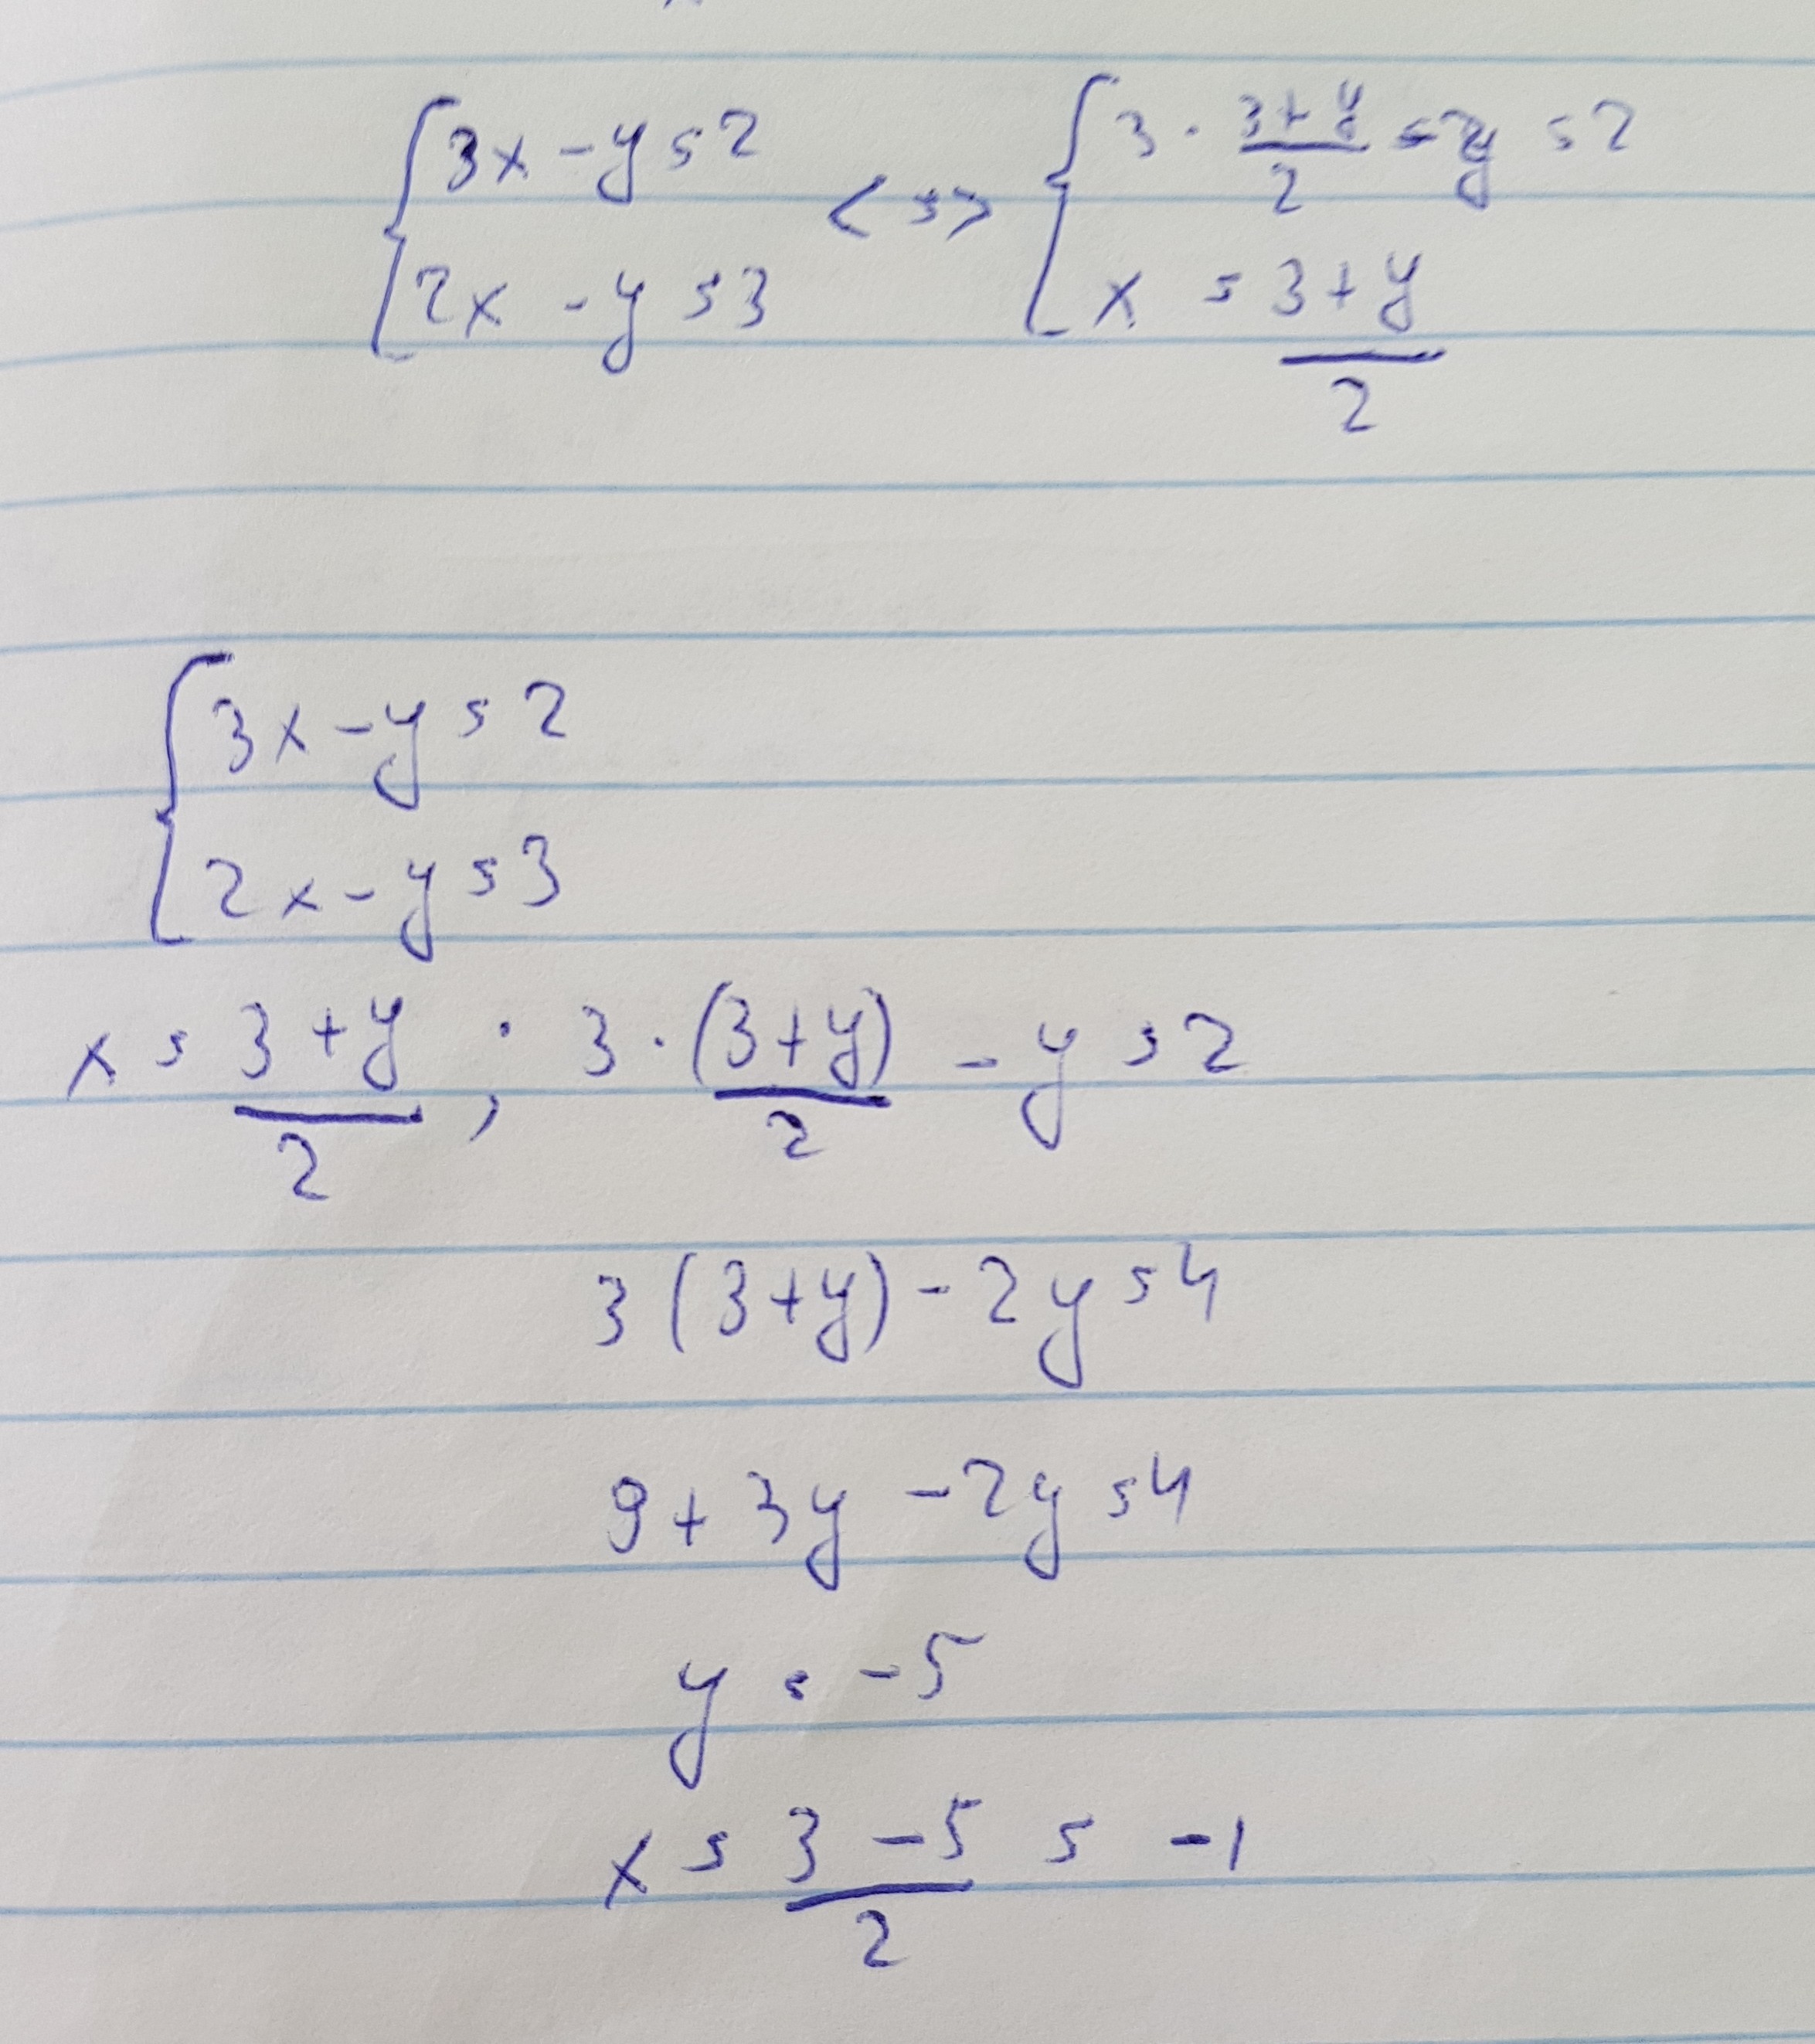 {3x - y = 2 <=> {3 · (3+y)/2 - y = 2
{2x - y = 3 {x = (3+y)/2
{3x - y = 2
{2x - y = 3
x = (3+y)/2 ; 3 · (3+y)/2 - y = 2
3(3+y) - 2y = 4
9 + 3y - 2y = 4
y = -5
x = (3-5)/2 = -1